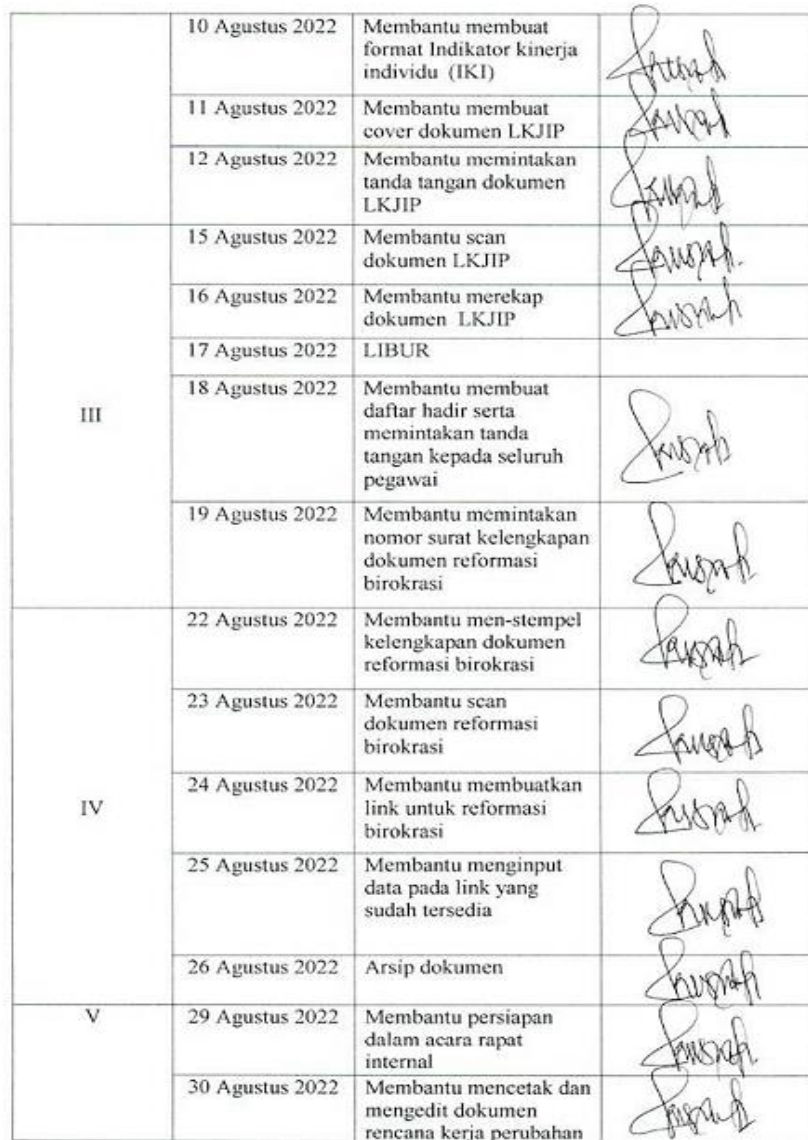 10 Agustus 2022
Membantu membuat
format Indikator kinerja
individu (IKI)
11 Agustus 2022
Membantu membuat
cover dokumen LKJIP
12 Agustus 2022
Membantu memintakan
tanda tangan dokumen
LKJIP
III
15 Agustus 2022
Membantu scan
dokumen LKJIP
16 Agustus 2022
Membantu merekap
dokumen LKJIP
17 Agustus 2022
LIBUR
18 Agustus 2022
Membantu membuat
daftar hadir serta
memintakan tanda
tangan kepada seluruh
pegawai
19 Agustus 2022
Membantu memintakan
nomor surat kelengkapan
dokumen reformasi
birokrasi
IV
22 Agustus 2022
Membantu men-stempel
kelengkapan dokumen
reformasi birokrasi
23 Agustus 2022
Membantu scan
dokumen reformasi
birokrasi
24 Agustus 2022
Membantu membuatkan
link untuk reformasi
birokrasi
25 Agustus 2022
Membantu menginput
data pada link yang
sudah tersedia
26 Agustus 2022
Arsip dokumen
V
29 Agustus 2022
Membantu persiapan
dalam acara rapat
internal
30 Agustus 2022
Membantu mencetak dan
mengedit dokumen
rencana kerja perubahan